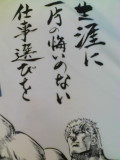 生涯に
一片の悔いのない
仕事選びを